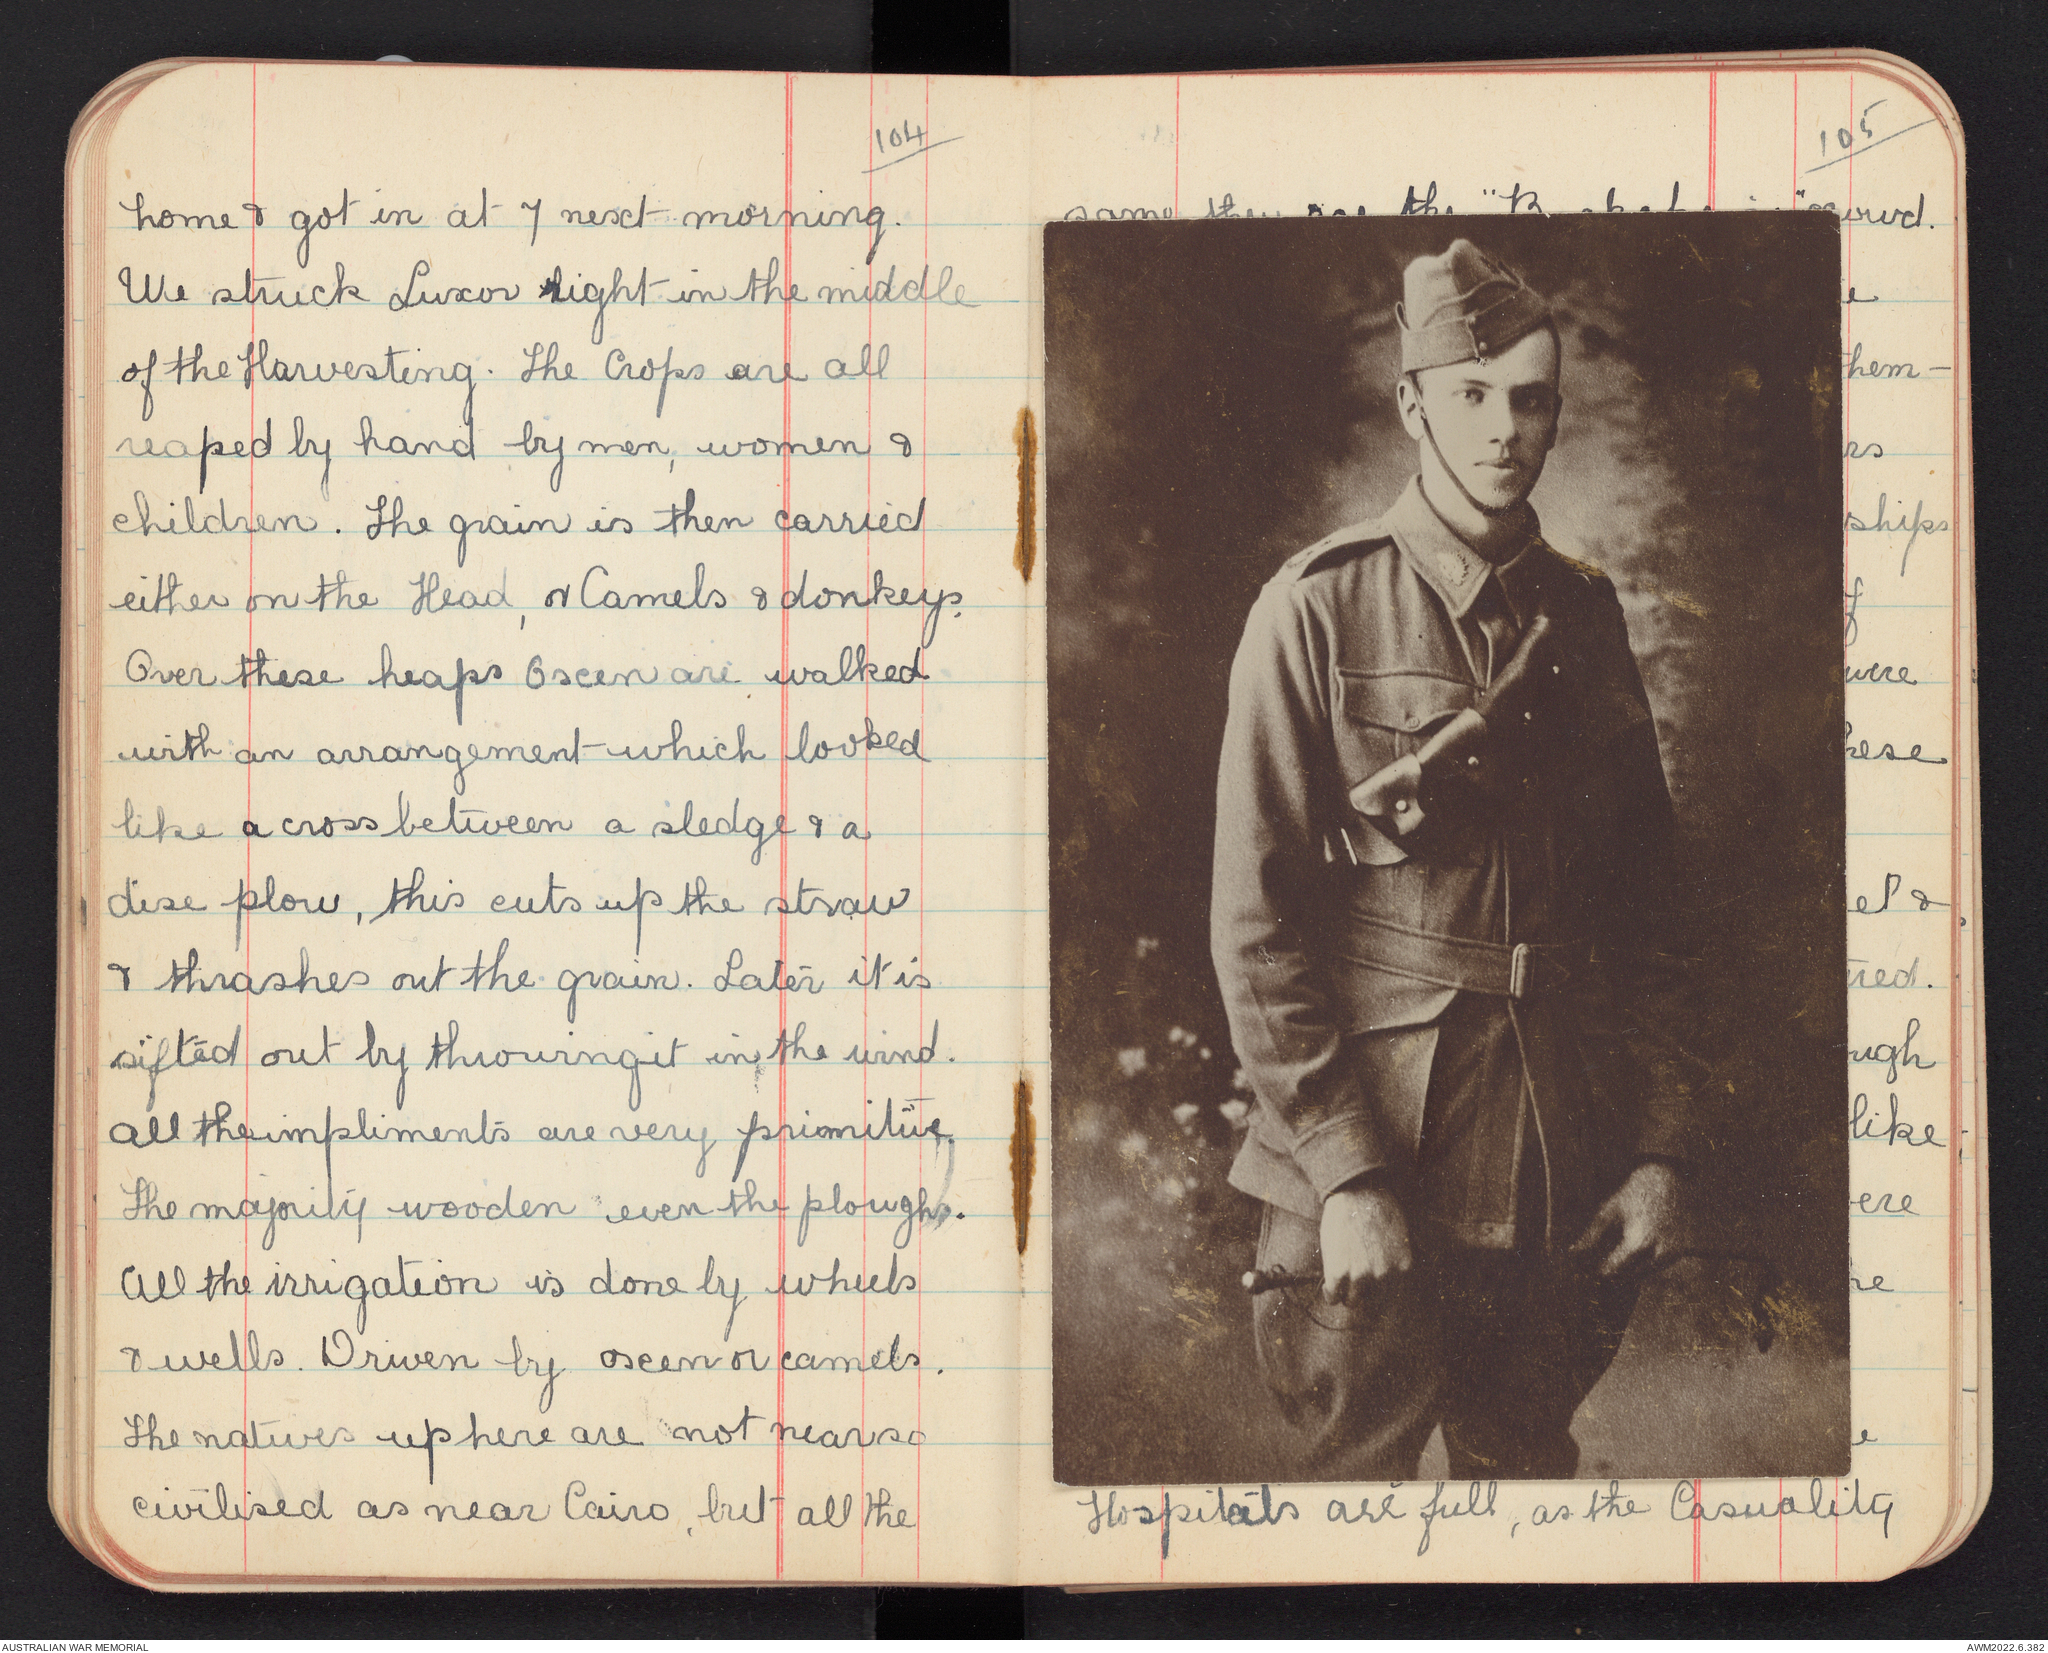 104
home & got in at 7 next morning.
We struck Luxor right in the middle
of the Harvesting. The Crops are all
reaped by hand by men, women &
children. The grain is then carried
either on the Head, or Camels & donkeys.
Over these heaps Oxen are walked
with an arrangement which looked
like a cross between a sledge & a
disc plow, this cuts up the straw
& thrashes out the grain. Later it is
sifted out by throwing it in the wind.
all the impliments are very primitive.
The majority wooden even the ploughs.
All the irrigation is done by wheels
& wells. Driven by oxen or camels.
The natives up here are not near so
civilised as near Cairo, but all the
105
same they are the
them-
ships
were
&
like
Hospitals are full, as the Casuality
AUSTRALIAN WAR MEMORIAL
AWM2022.6.382